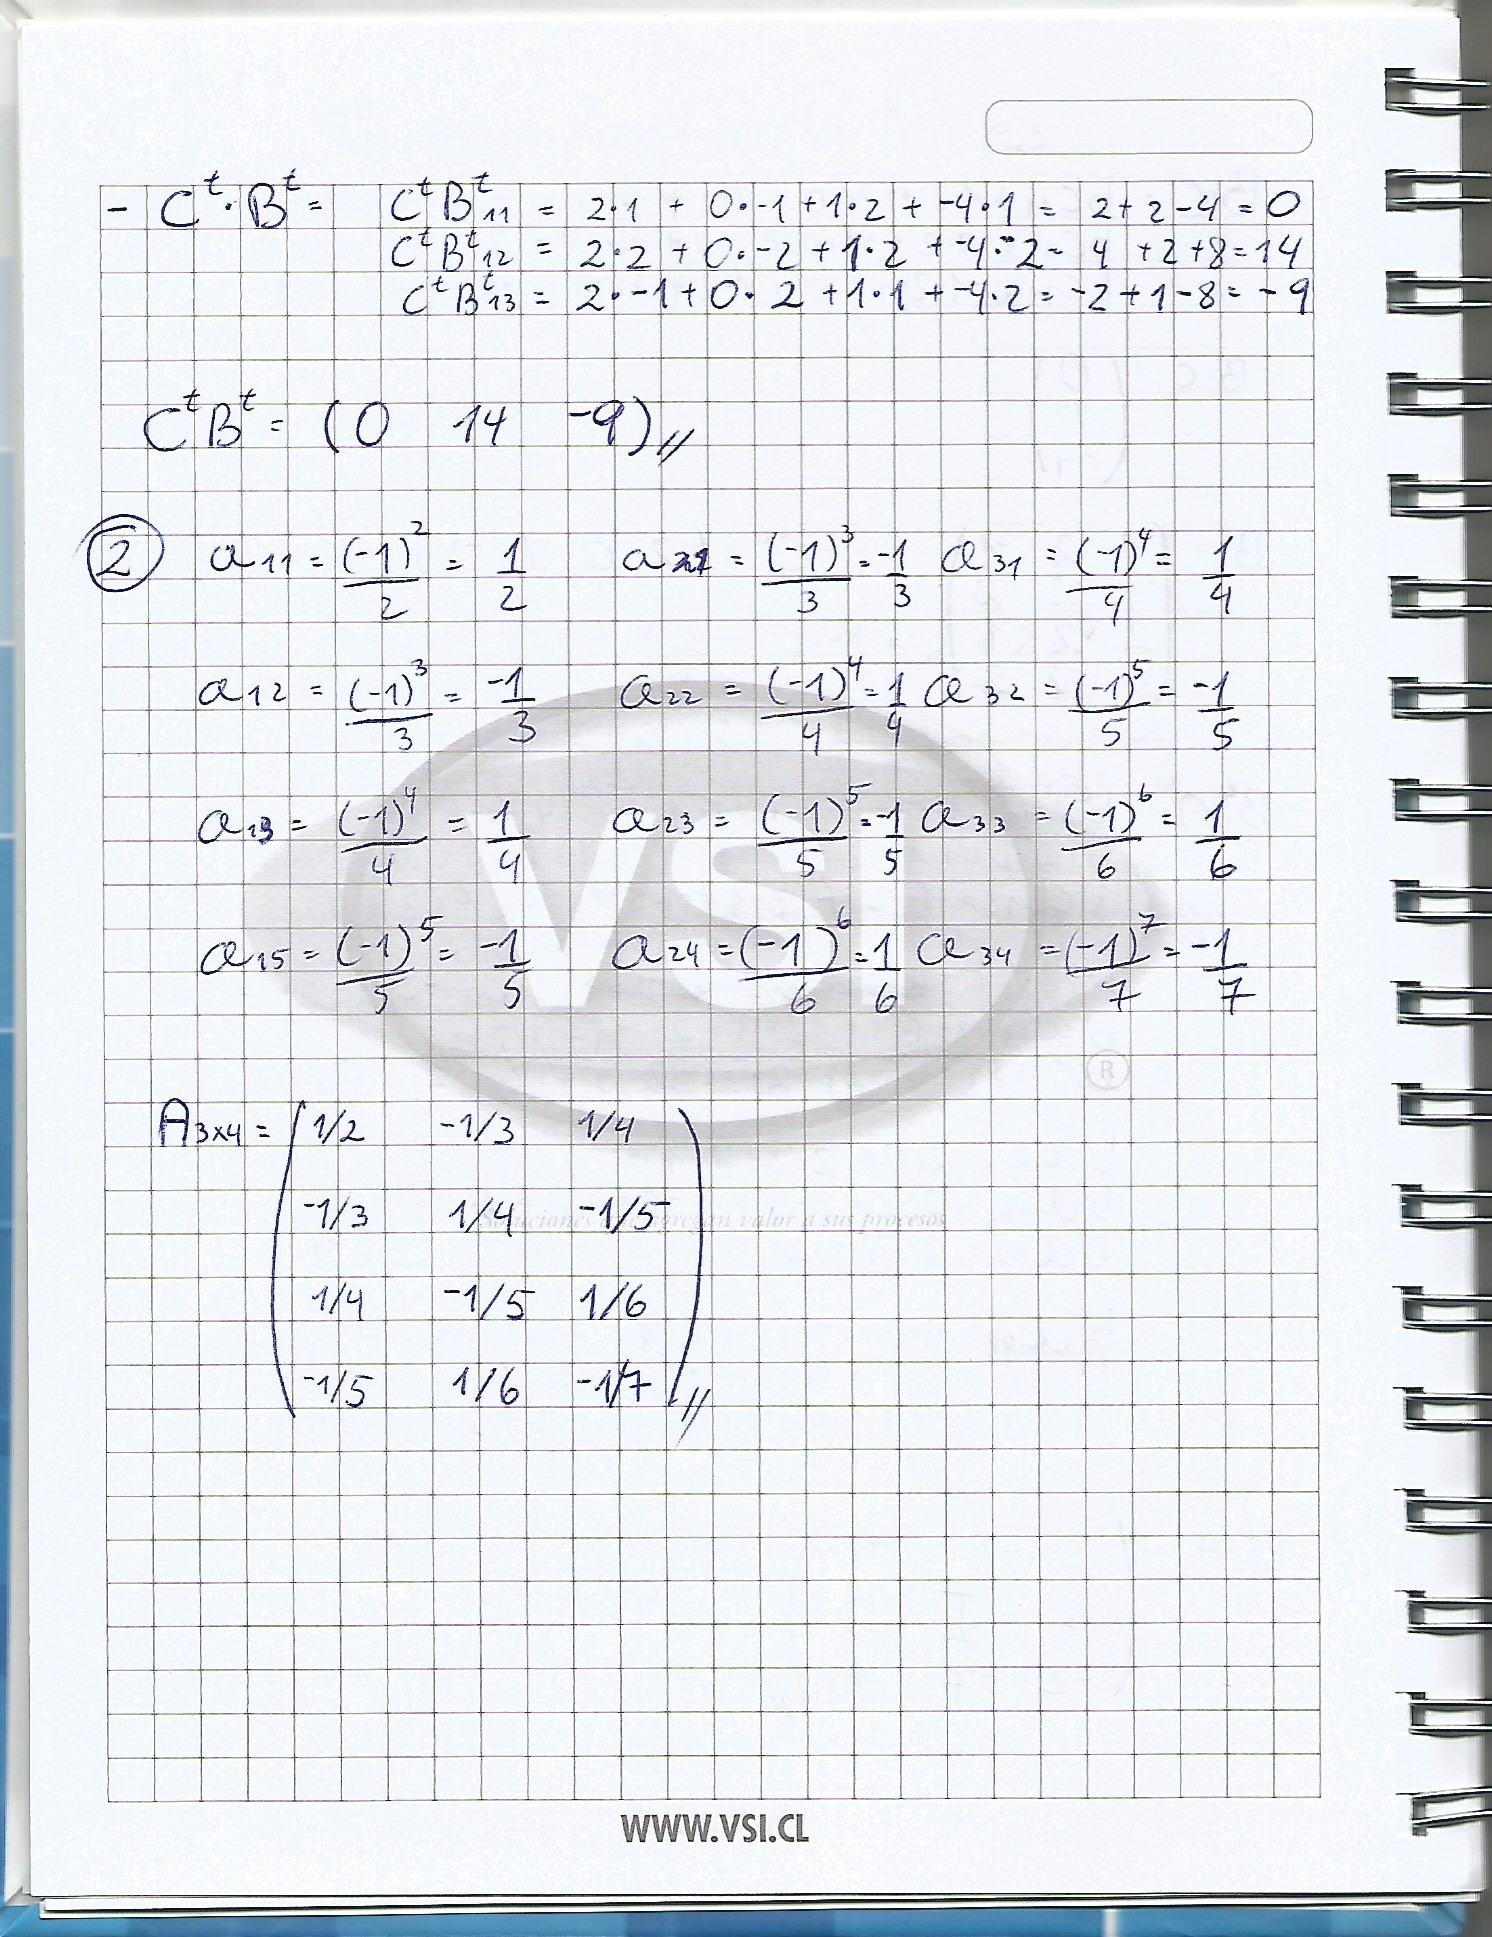 - Cᵗ·Bᵗ = CᵗBᵗ₁₁ = 2·1 + 0·-1 + 1·2 + -4·1 = 2+2-4 = 0
CᵗBᵗ₁₂ = 2·2 + 0·-2 + 1·2 + -4·-2 = 4 +2+8=14
CᵗBᵗ₁₃ = 2·-1 + 0·2 + 1·1 + -4·2 = -2+1-8 = -9
CᵗBᵗ = (0 14 -9)//
② a₁₁ = (-1)²/2 = 1/2 a₂₁ = (-1)³/3 = -1/3 a₃₁ = (-1)⁴/4 = 1/4
a₁₂ = (-1)³/3 = -1/3 a₂₂ = (-1)⁴/4 = 1/4 a₃₂ = (-1)⁵/5 = -1/5
a₁₃ = (-1)⁴/4 = 1/4 a₂₃ = (-1)⁵/5 = -1/5 a₃₃ = (-1)⁶/6 = 1/6
a₁₅ = (-1)⁵/5 = -1/5 a₂₄ = (-1)⁶/6 = 1/6 a₃₄ = (-1)⁷/7 = -1/7
VSI
®
A₃ₓ₄ = (1/2 -1/3 1/4
-1/3 1/4 -1/5
Soluciones que agregan valor a sus procesos
1/4 -1/5 1/6
-1/5 1/6 -1/7)//
WWW.VSI.CL